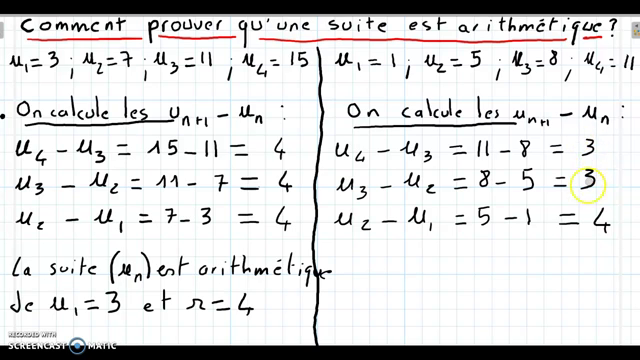 Comment prouver qu'une suite est arithmétique ?
u₁=3 ; u₂=7 ; u₃=11 ; u₄=15
On calcule les uₙ₊₁ - uₙ :
u₄ - u₃ = 15 - 11 = 4
u₃ - u₂ = 11 - 7 = 4
u₂ - u₁ = 7 - 3 = 4
La suite (uₙ) est arithmétique
de u₁ = 3 et r = 4
u₁ = 1 ; u₂ = 5 ; u₃ = 8 ; u₄ = 11
On calcule les uₙ₊₁ - uₙ :
u₄ - u₃ = 11 - 8 = 3
u₃ - u₂ = 8 - 5 = 3
u₂ - u₁ = 5 - 1 = 4
RECORDED WITH
SCREENCAST MATIC